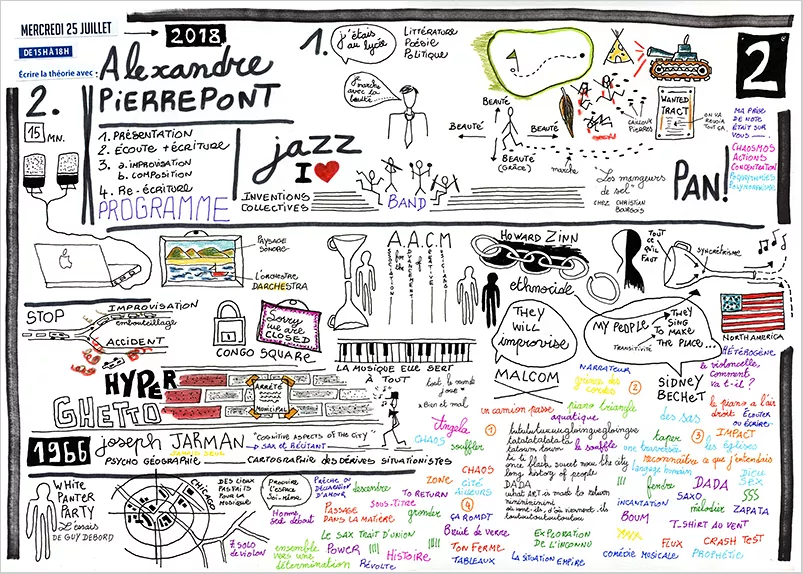 MERCREDI 25 JUILLET
DE 15H À 18H
2018
Écrire la théorie avec :
Alexandre
PiERREPONT
2.
15 MN.
1. PRÉSENTATION
2. ÉCOUTE + ÉCRITURE
3. a. IMPROVISATION
b. COMPOSITION
4. Re-ÉCRITURE
PROGRAMME
1.
j'étais
au lycée
LITTÉRATURE
POÉSIE
POLITIQUE
je
marche
avec la
jazz
I
INVENTIONS
COLLECTIVES
BAND
BEAUTÉ
BEAUTÉ
BEAUTÉ
BEAUTÉ
(GRÂCE)
marche
CAILLOUX
PIERRES
WANTED
TRACT
ON VA
REVOIR
TOUT ÇA.
Les mangeurs
de sel
CHEZ CHRISTIAN
BOURGOIS
PAN!
2
MA PRISE
DE NOTE
ÉTAIT SUR
VOUS
CHAOSMOS
ACTIONS
CONCENTRATION
PAYSAGE
SONORE
L'ORCHESTRE
DARCHESTRA
A.A.C.M
ASSOCIATION
for the
ADVANCEMENT
of
CREATIVE
MUSICIANS
HOWARD ZINN
ethnocide
TOUT
CE QU'IL
FAUT
syncrétisme
NORTH AMERICA
STOP
IMPROVISATION
embouteillage
ACCIDENT
Sorry
we are
CLOSED
CONGO SQUARE
LA MUSIQUE ELLE SERT
À TOUT
THEY
WILL
improvise
MALCOM
MY PEOPLE
THEY
SING
TO MAKE
THE PLACE...
TRANSITIVITÉ
SIDNEY
BECHET
HYPER
GHETTO
ARRÊTÉ
MUNICIPAL
tout le monde
joue
Bien et mal
1966
joseph JARMAN
"COGNITIVE ASPECTS OF THE CITY"
SAX ET RÉCITANT
PSYCHO GÉOGRAPHIE
CARTOGRAPHIE DES DÉRIVES SITUATIONISTES
WHITE
PANTER
PARTY
L'essais
DE GUY DEBORD
DES LIEUX
RESTREITS
POUR LA
MUSIQUE
CHICAGO
PRODUIRE
L'ESPACE
Soi-même
HÉTÉROGÈNE
le violoncelle,
Comment
va t-il ?
NARRATEUR
grince des
cordes
2
un camion passe
piano triangle
aquatique
des sas
le piano a l'air
droit
ÉCOUTER
OU ÉCRIRE
1
Angela
CHAOS
souffler
le souffle
once flash, sweet was the city
long history of people
DADA
what art is made to return
taper
3
IMPACT
une traversée
les églises
reconnaître ce que j'entendais
langage humain
DIEU
SEX
PRÊCHE OU
DÉCLARATION
D'AMOUR
descendre
TO RETURN
SOUS-TITRE
PASSAGE
DANS LA MATIÈRE
gronder
CHAOS
ZONE
CITÉ
AILLEURS
4
ÇA ROMPT
Homme
seul debout
LE SAX TRAIT D'UNION
Bruit de verre
7 solo
de violon
ensemble
vers une
détermination
POWER
!!!!
RÉVOLTE
Histoire
TON FERME
TABLEAUX
EXPLORATION
DE L'INCONNU
LA SITUATION EMPIRE
!!!
fendre
DADA
SAXO
$$$
INCANTATION
BOUM
mélodier
ZAPATA
T-SHIRT AU VENT
FLUX
CRASH TEST
COMÉDIE MUSICALE
PROPHÉTIE